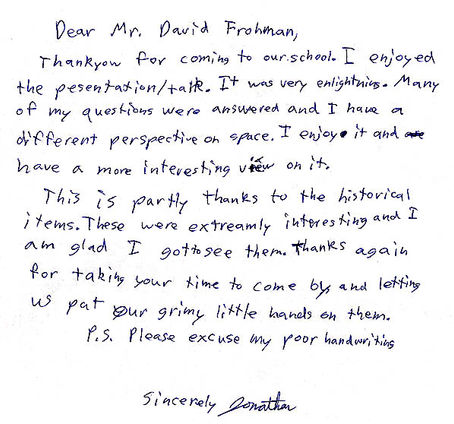 Dear Mr. David Frohman,
Thankyou for coming to our school. I enjoyed
the pesentation/talk. It was very enlightning. Many
of my questions were answered and I have a
different perspective on space. I enjoy it and
have a more interesting view on it.
This is partly thanks to the historical
items. These were extreamly interesting and I
am glad I got to see them. Thanks again
for taking your time to come by, and letting
us pat our grimy little hands on them.
P.S. Please excuse my poor handwriting
Sincerely Jonathan